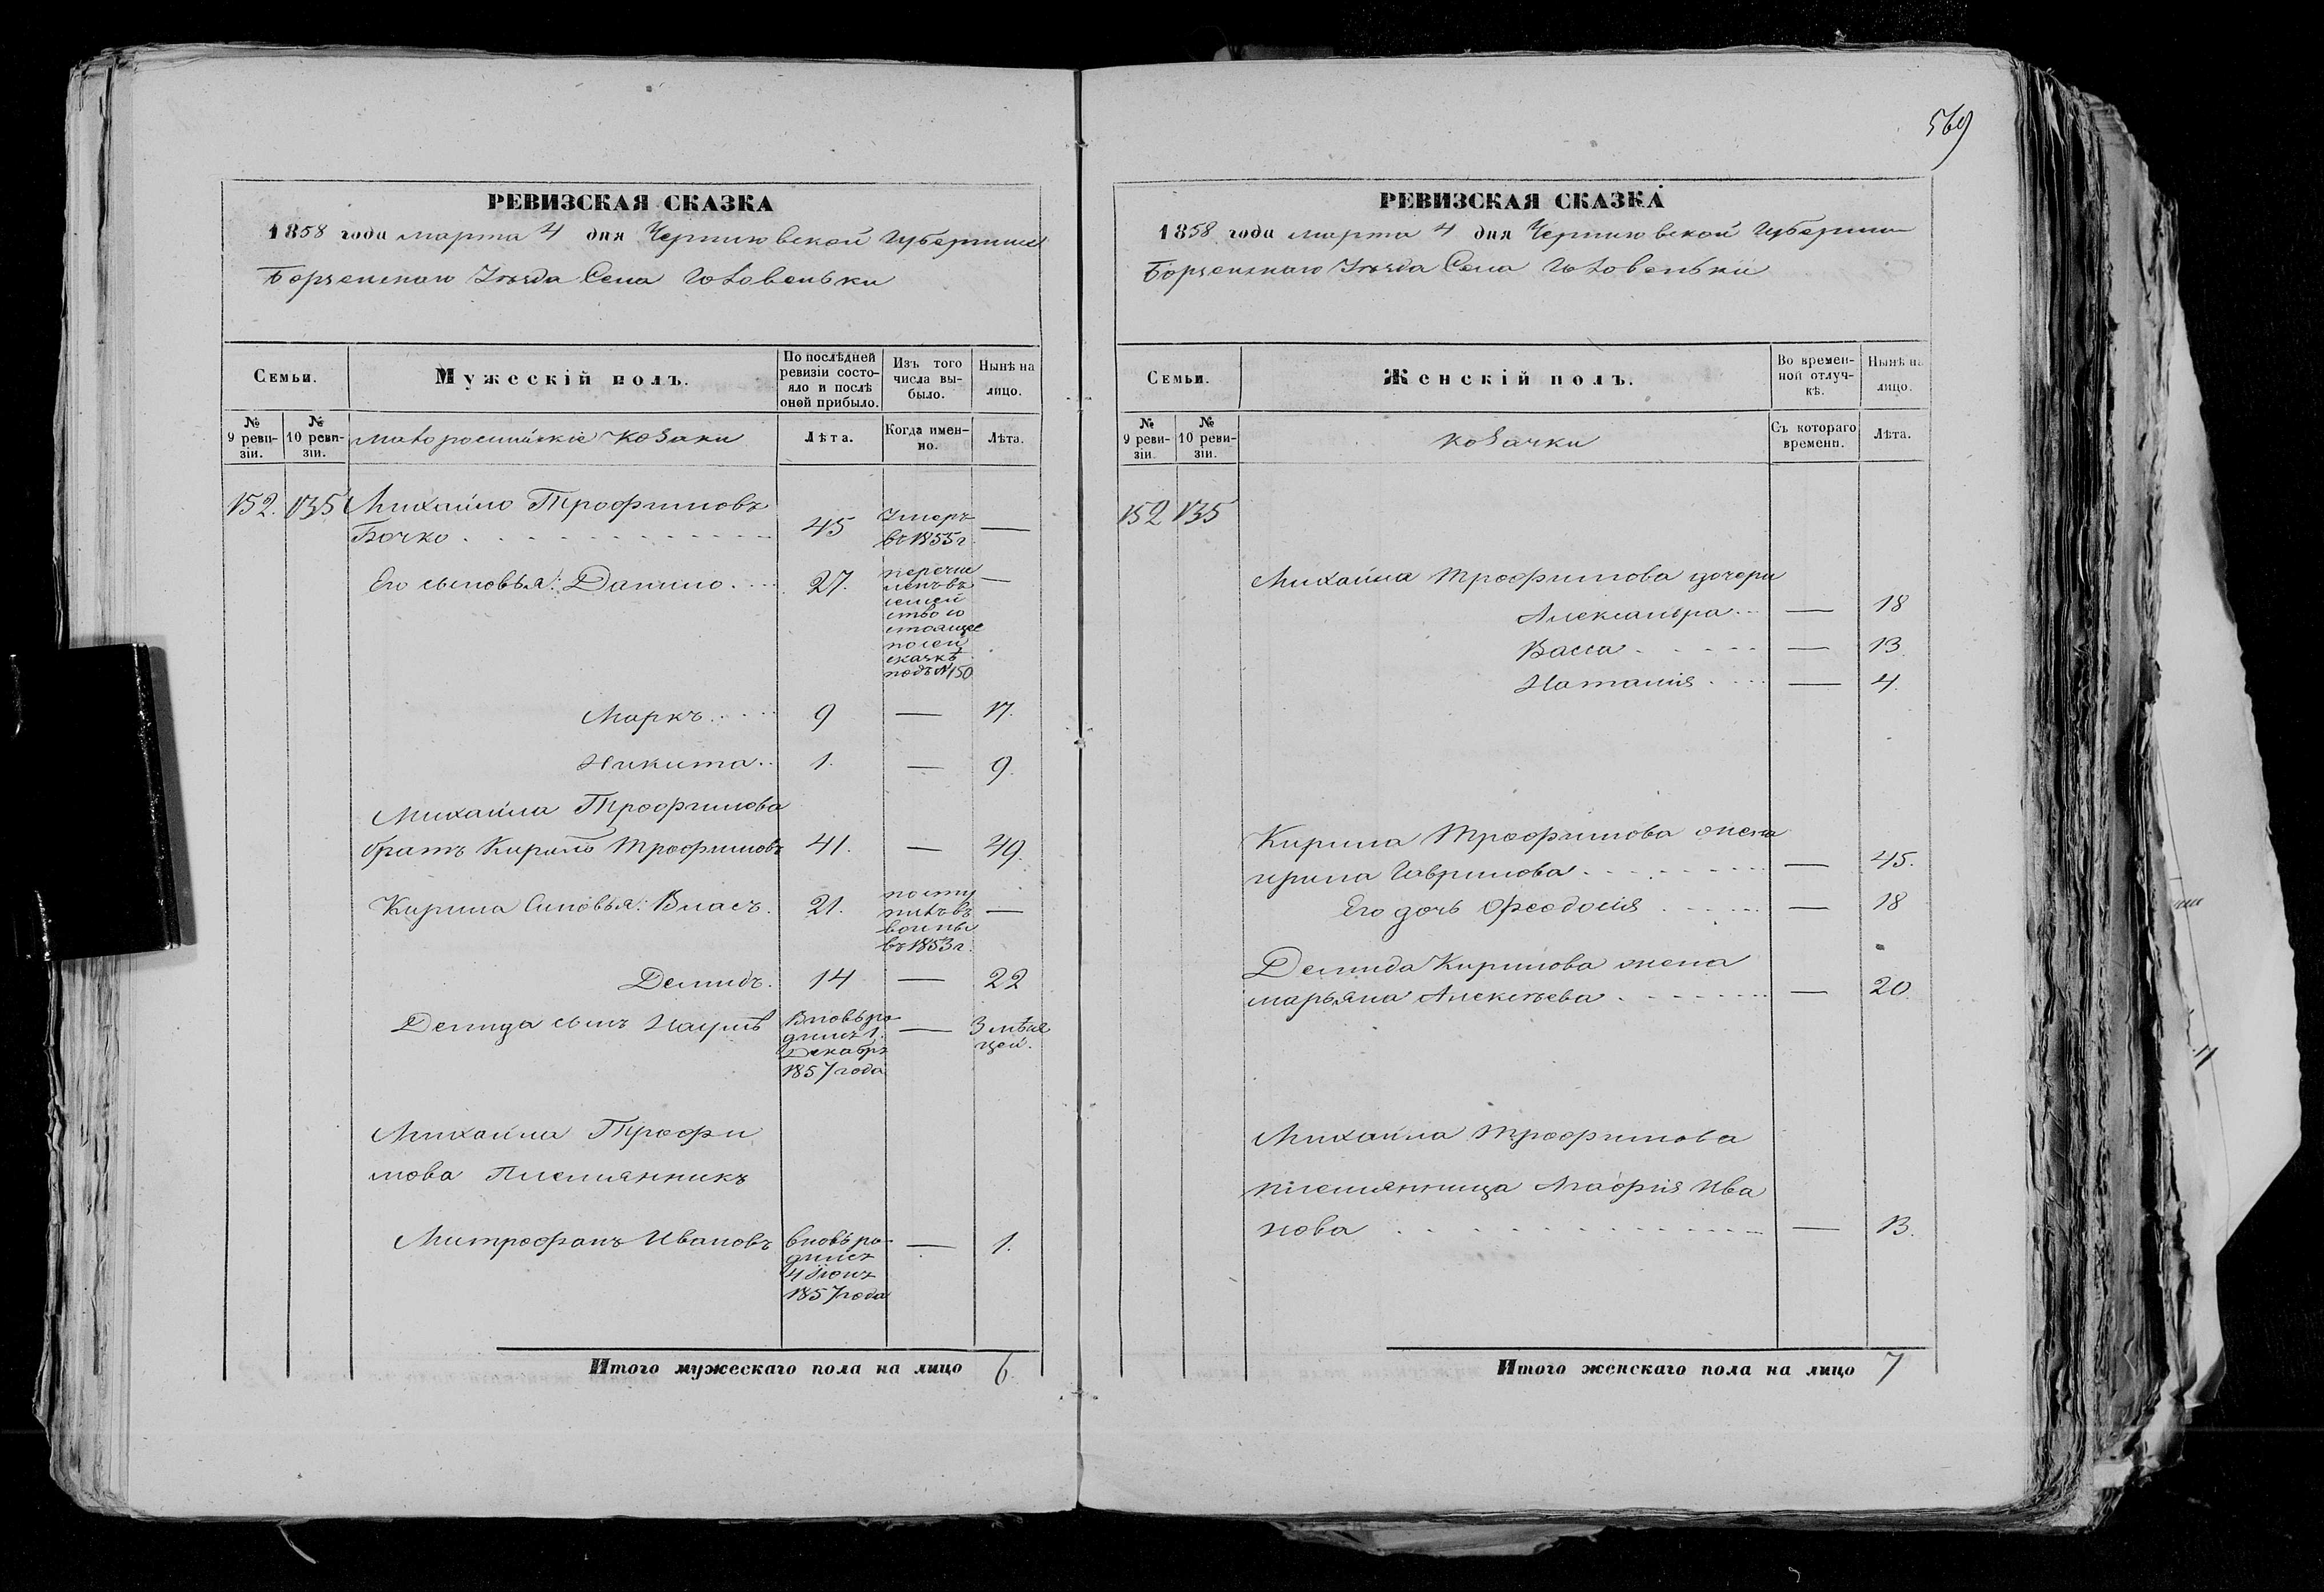 569
РЕВИЗСКАЯ СКАЗКА
1858 года марта 4 дня Черниговской Губернии
Борзенскаго Уезда Села Головеньки
Семьи.
Мужескій полъ.
По послѣдней ревизіи состояло и послѣ оной прибыло.
Изъ того числа выбыло.
Нынѣ на лицо.
№ 9 ревизіи.
№ 10 ревизіи.
малороссійскіе козаки
Лѣта.
Когда именно.
Лѣта.
152. 135 Михайло Трофимовъ
Бочко 45 Умеръ в 1855 г. —
Его сыновья: Данило 27. перечисленъ въ семейство состоящее по сей сказкѣ подъ № 150 —
Маркъ 9 — 17.
Никита 1. — 9.
Михайла Трофимова
братъ Кирило Трофимовъ 41. — 49.
Кирила Синовья: Власъ. 21. поступилъ въ воины въ 1853 г. —
Демидъ. 14 — 22
Демида сынъ Наумъ Вновь родился 1. Декабря 1857 года — 3 мѣсяцей.
Михайла Трофи
мова Племянникъ
Митрофанъ Ивановъ вновь родился 4 Июня 1857 года — 1.
Итого мужескаго пола на лицо 6.
РЕВИЗСКАЯ СКАЗКА
1858 года марта 4 дня Черниговской Губернии
Борзенскаго Уезда Села Головеньки
Семьи.
Женскій полъ.
Во временной отлучкѣ.
Нынѣ на лицо.
№ 9 ревизіи.
№ 10 ревизіи.
козачки
Съ котораго времени.
Лѣта.
152 135
Михайла Трофимова дочери
Александра — 18
Васса — 13.
Наталия — 4.
Кирила Трофимова жена
Ирина Гаврилова — 45.
Его дочь Феодосія — 18
Демида Кирилова жена
марьяна Алексеева — 20.
Михайла Трофимова
племянница Агафия Ива
нова — 13.
Итого женскаго пола на лицо 7